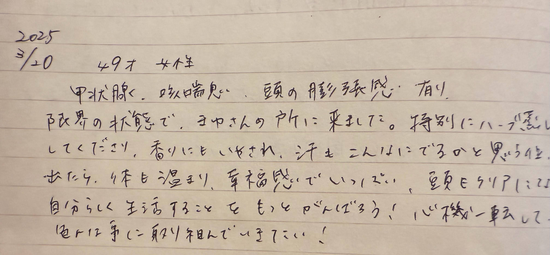 2025
3/20 49才 女性
甲状腺、咳喘息、頭の膨張感 有り
限界の状態で、 さんの所に来ました。特別にハーブ蒸し
してくださり、香りにもいやされ、汗もこんなにでるかと思う位
出たら、体も温まり、幸福感でいっぱい、頭もクリアに
自分らしく生活することをもっとがんばろう!心機一転して
色んな事に取り組んでいきたい!